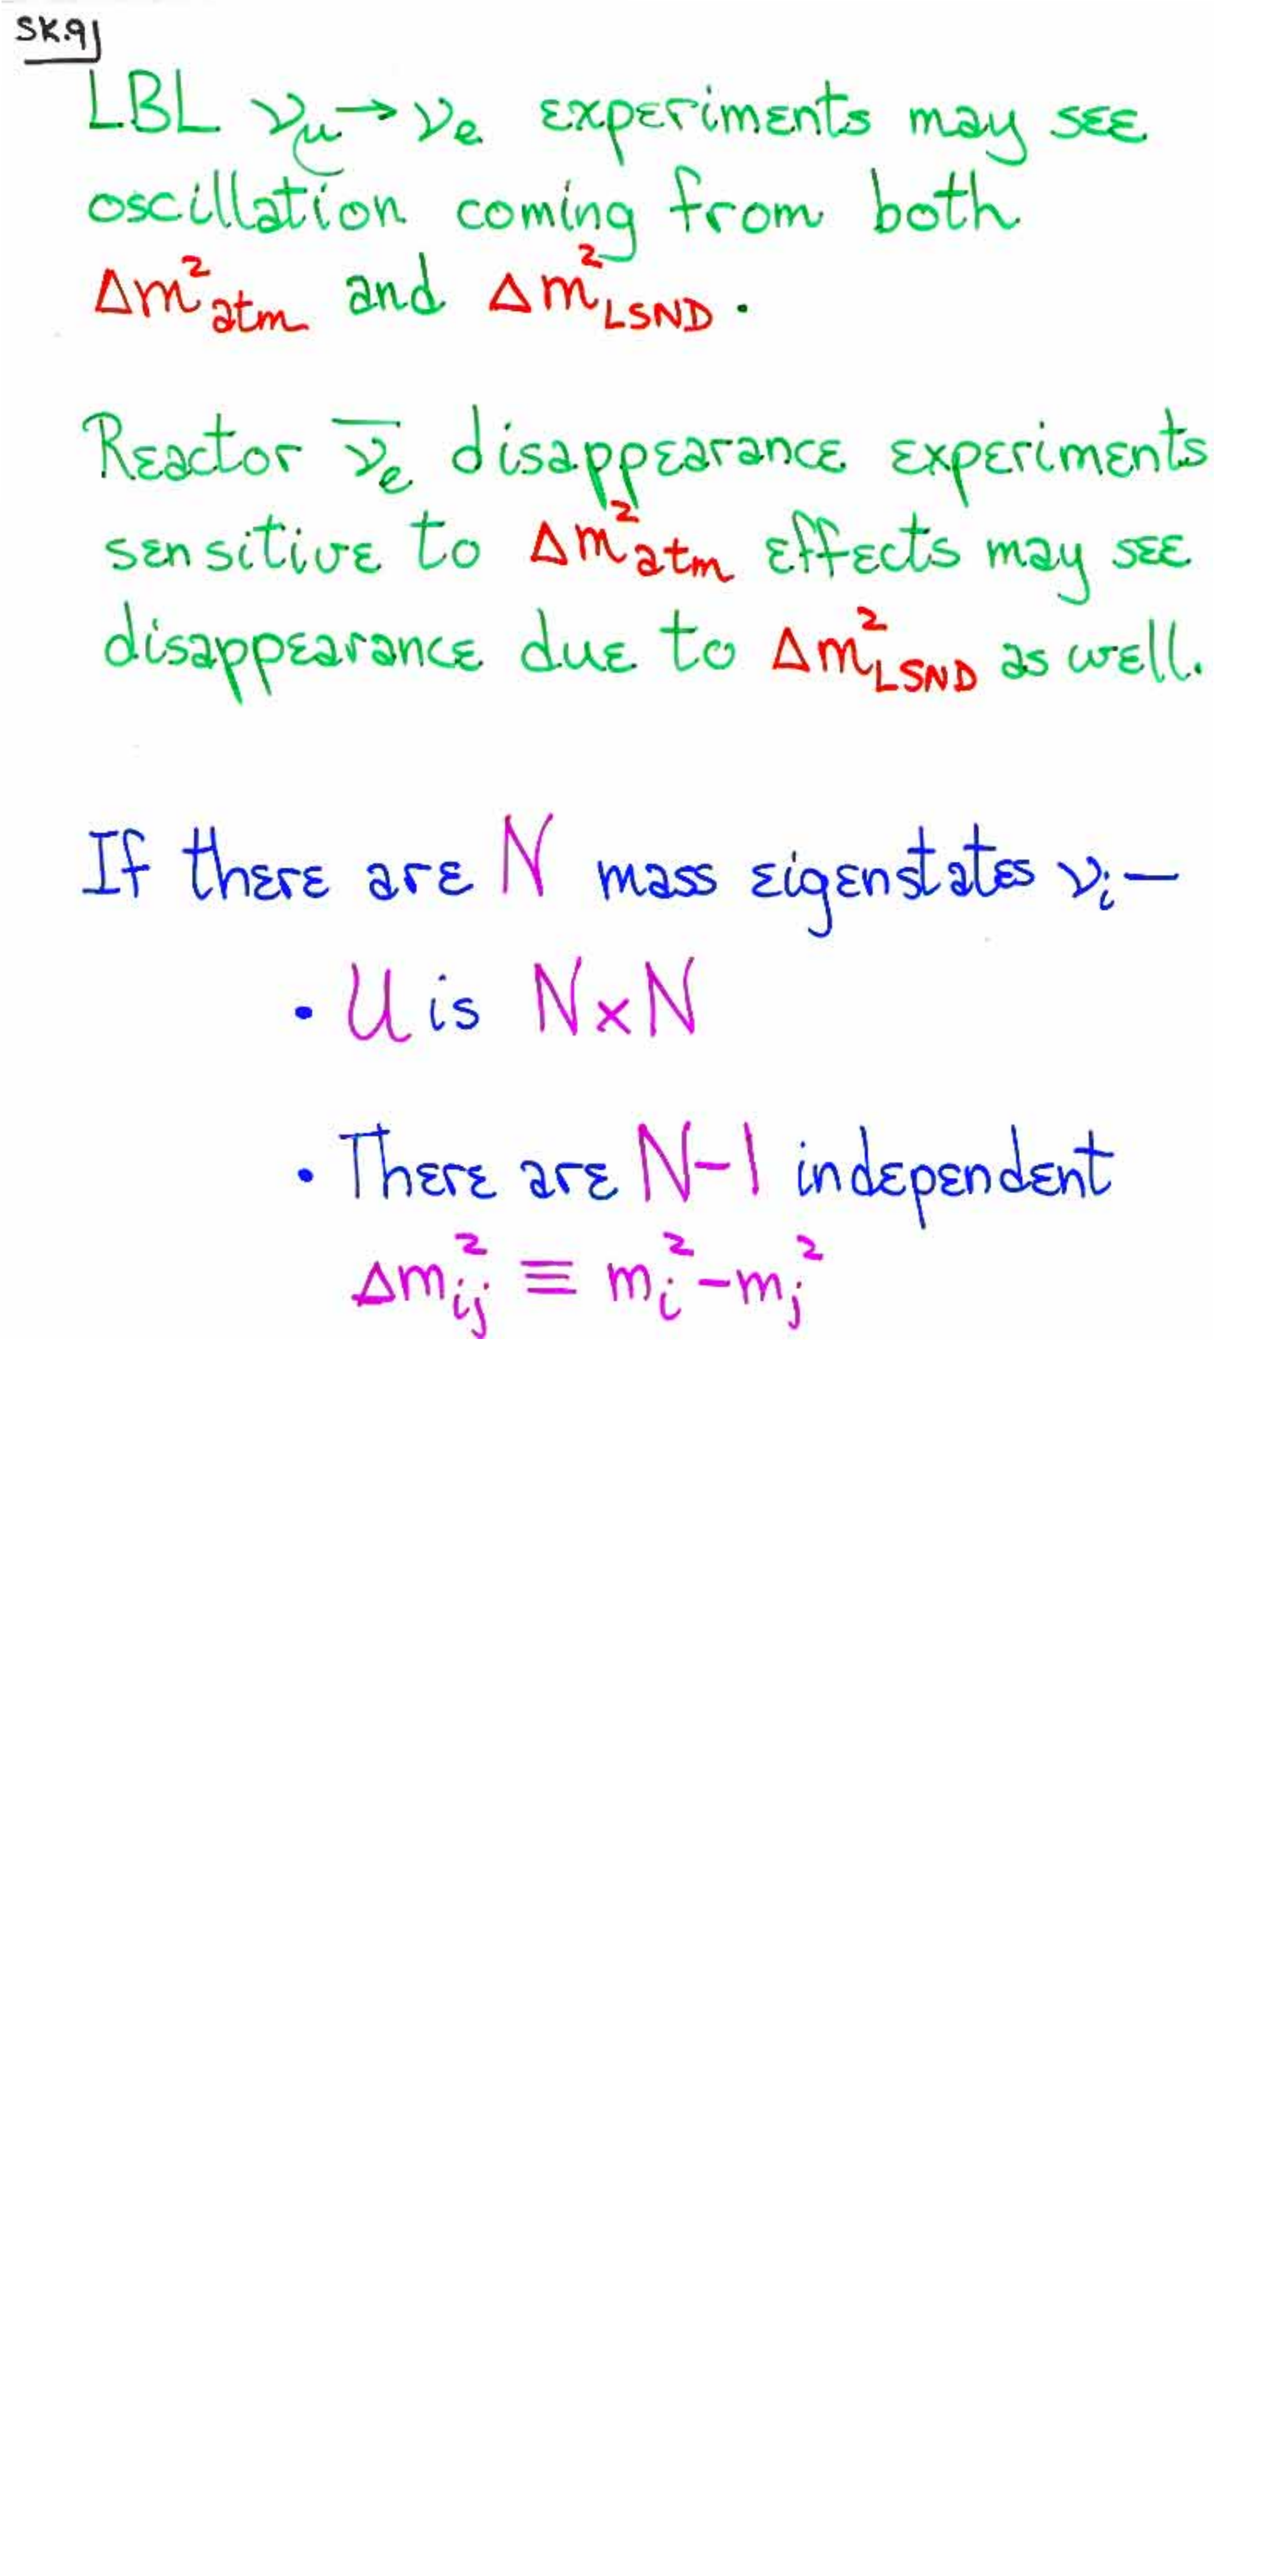 SK.9
LBL νμ→νe experiments may see
oscillation coming from both
Δm²atm and Δm²LSND.
Reactor ν̅e disappearance experiments
sensitive to Δm²atm effects may see
disappearance due to Δm²LSND as well.
If there are N mass eigenstates νi—
• U is N×N
• There are N-1 independent
Δm²ij ≡ mi²-mj²